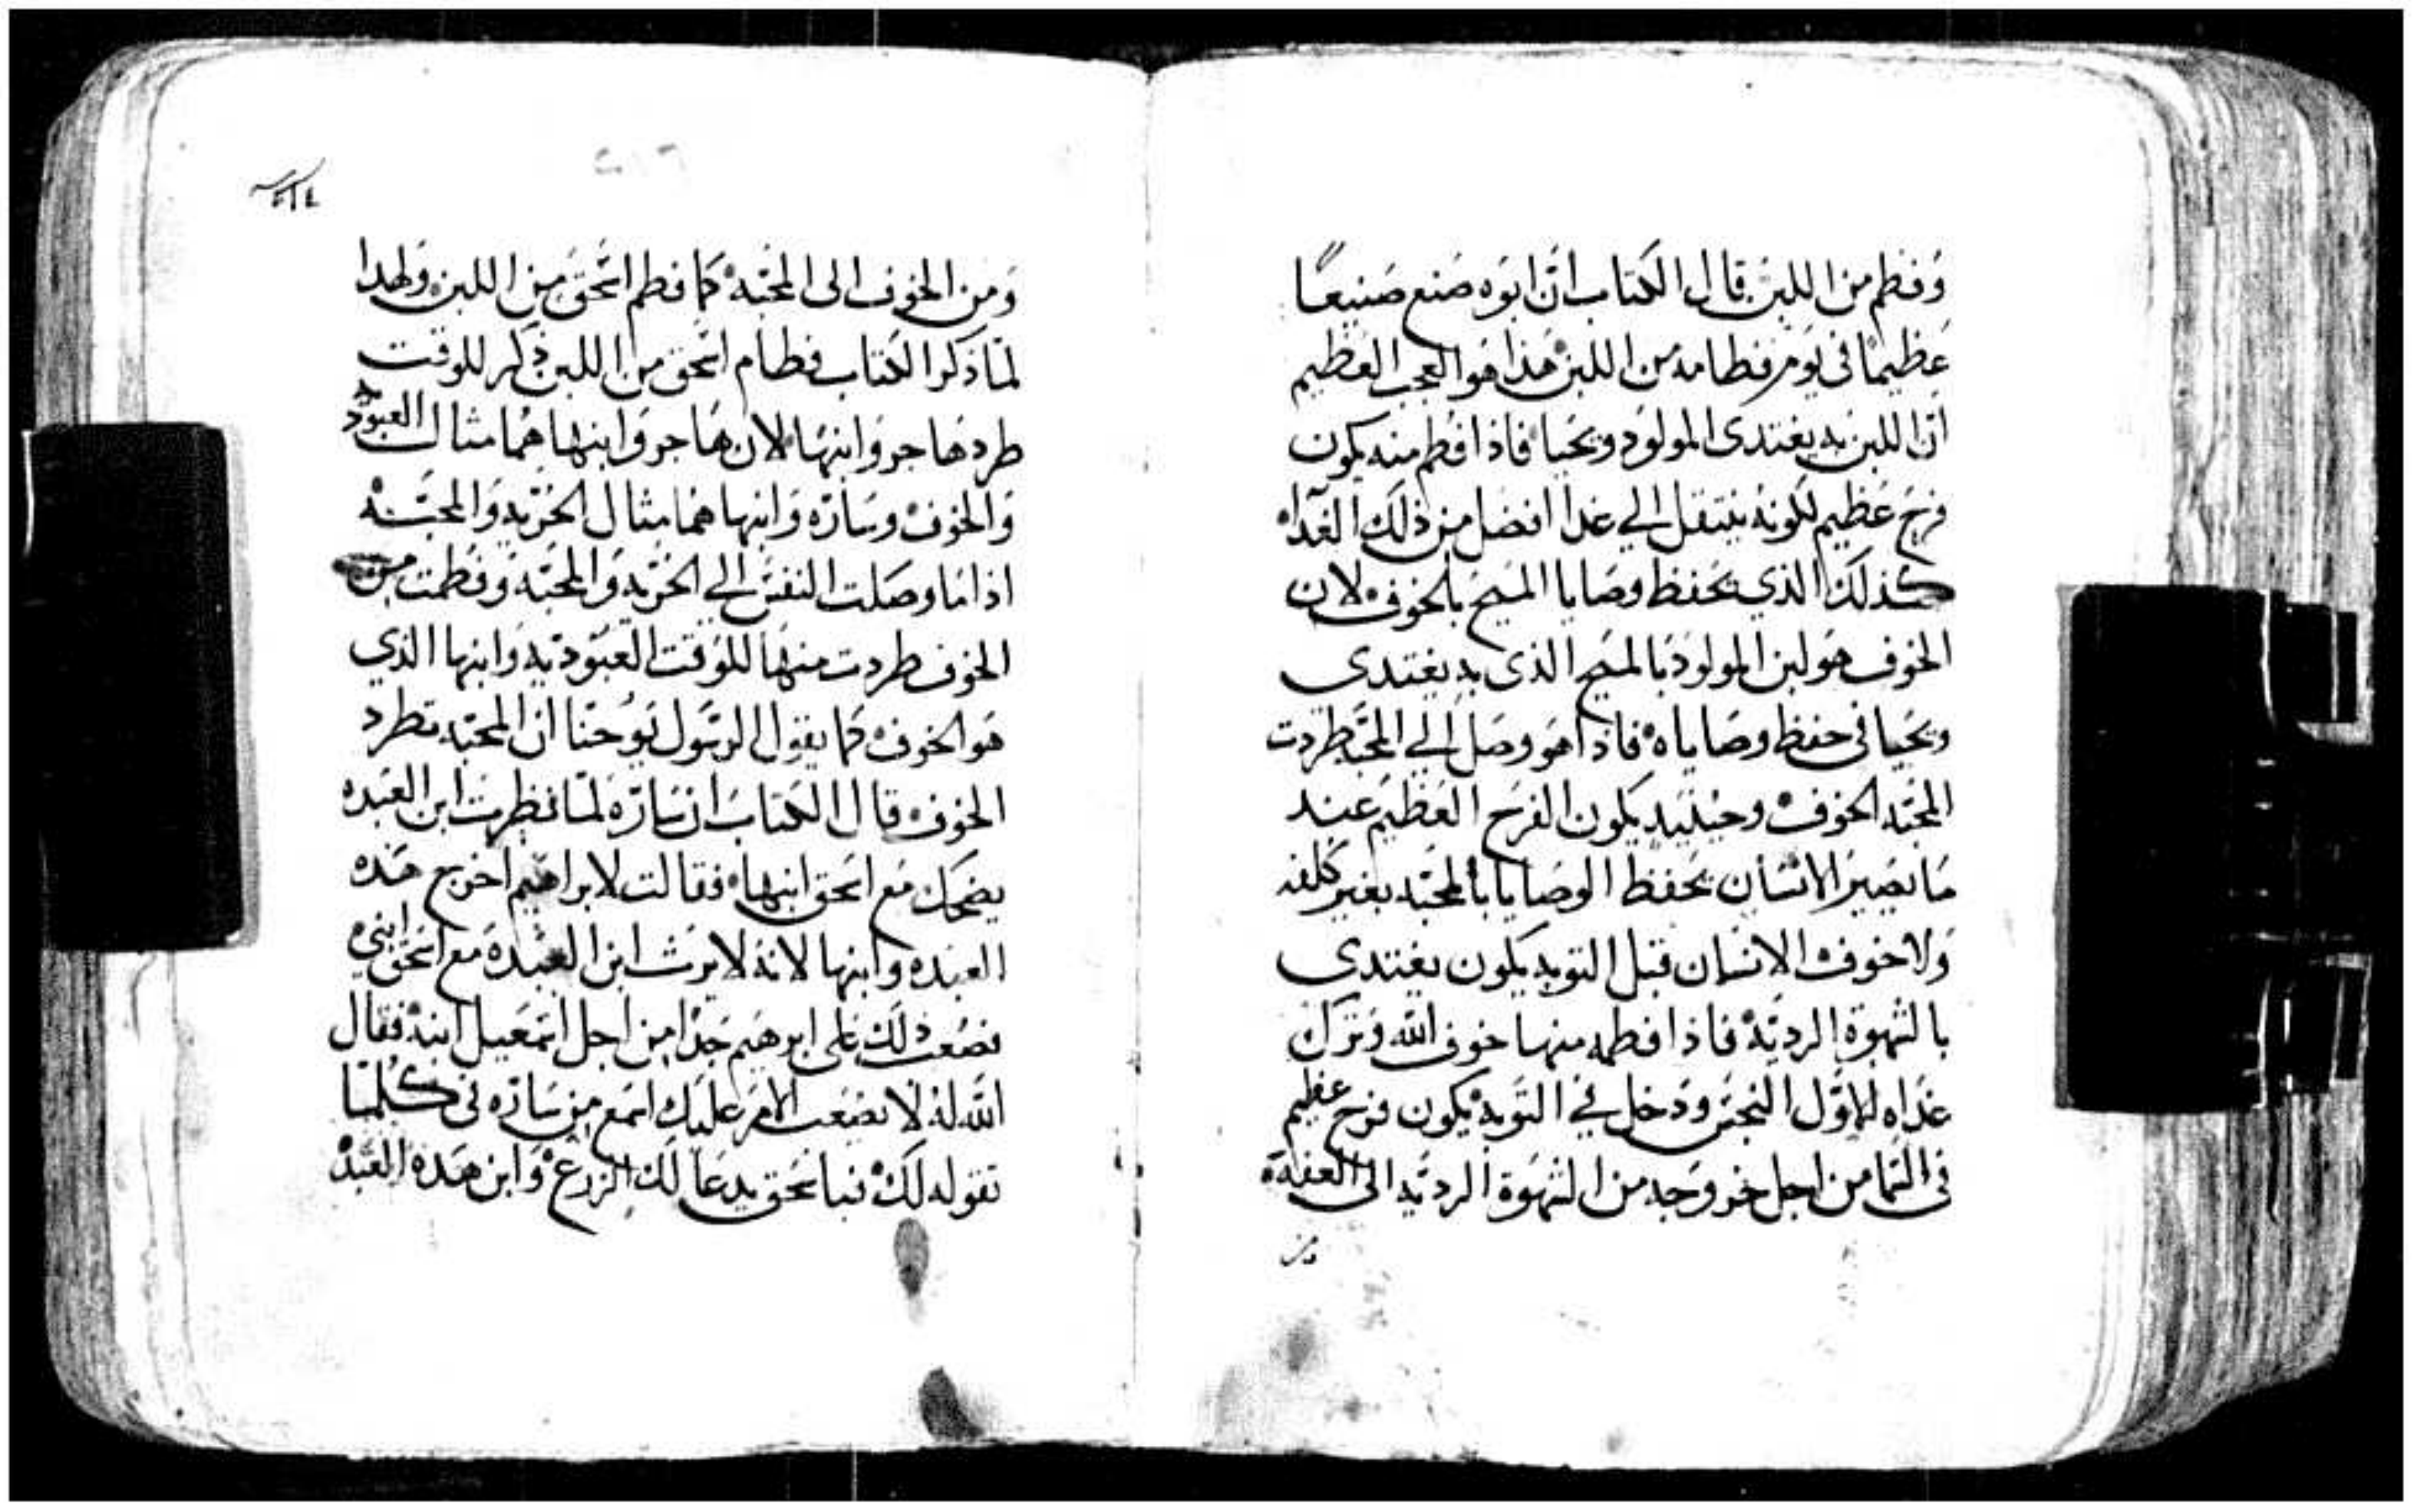 وفطم من اللبن قال الكتاب ان ابوه صنع صنيعًا
عظيمًا في يوم فطامه من اللبن هذا هو العجب العظيم
ان اللبن به يغتدى المولود ويحيا فاذا فطم منه يكون
فرح عظيم لكونه ينتقل الي غدا افضل من ذلك الغداه
كذلك الذي يحفظ وصايا المسيح بالخوف لان
الخوف هو لبن المولود بالمسيح الذى به يغتدي
ويحيا في حفظ وصاياه فاذا هو وصل الي المحبة طردت
المحبه الخوف وحينيد يكون الفرح العظيم عند
ما يصير الانسان يحفظ الوصايا بالمحبه بغير كلفه
ولا خوف الانسان قبل التوبه يكون يغتدي
بالشهوة الرديه فاذا فطمه منها خوف الله وترك
غداه الاول النجس ودخل في التوبه يكون فرح عظيم
في السما من اجل خروجه من الشهوة الرديه الى العفه
من
ومن الخوف الى المحبه كما فطم اسحق من اللبن ولهدا
لما ذكر الكتاب فطام اسحق من اللبن ذكر للوقت
طرد هاجر وابنها لان هاجر وابنها هما مثال العبوديه
والخوف وساره وابنها هما مثال الحريه والمحبه
اذا ما وصلت النفس الي الحريه والمحبه وفطمت من
الخوف طردت منها للوقت العبوديه وابنها الذي
هو الخوف كما يقول الرسول يوحنا ان المحبه تطرد
الخوف قال الكتاب ان ساره لما نظرت ابن العبده
يضحك مع اسحق ابنها فقالت لابراهيم اخرج هده
العبده وابنها لانه لا يرث ابن العبده مع اسحق ابني
فصعب ذلك على ابرهيم جدا من اجل اسمعيل ابنه فقال
الله له لا يصعب الامر عليك اسمع من ساره في كلما
تقوله لك فباسحق يدعا لك الزرع وابن هده العبد